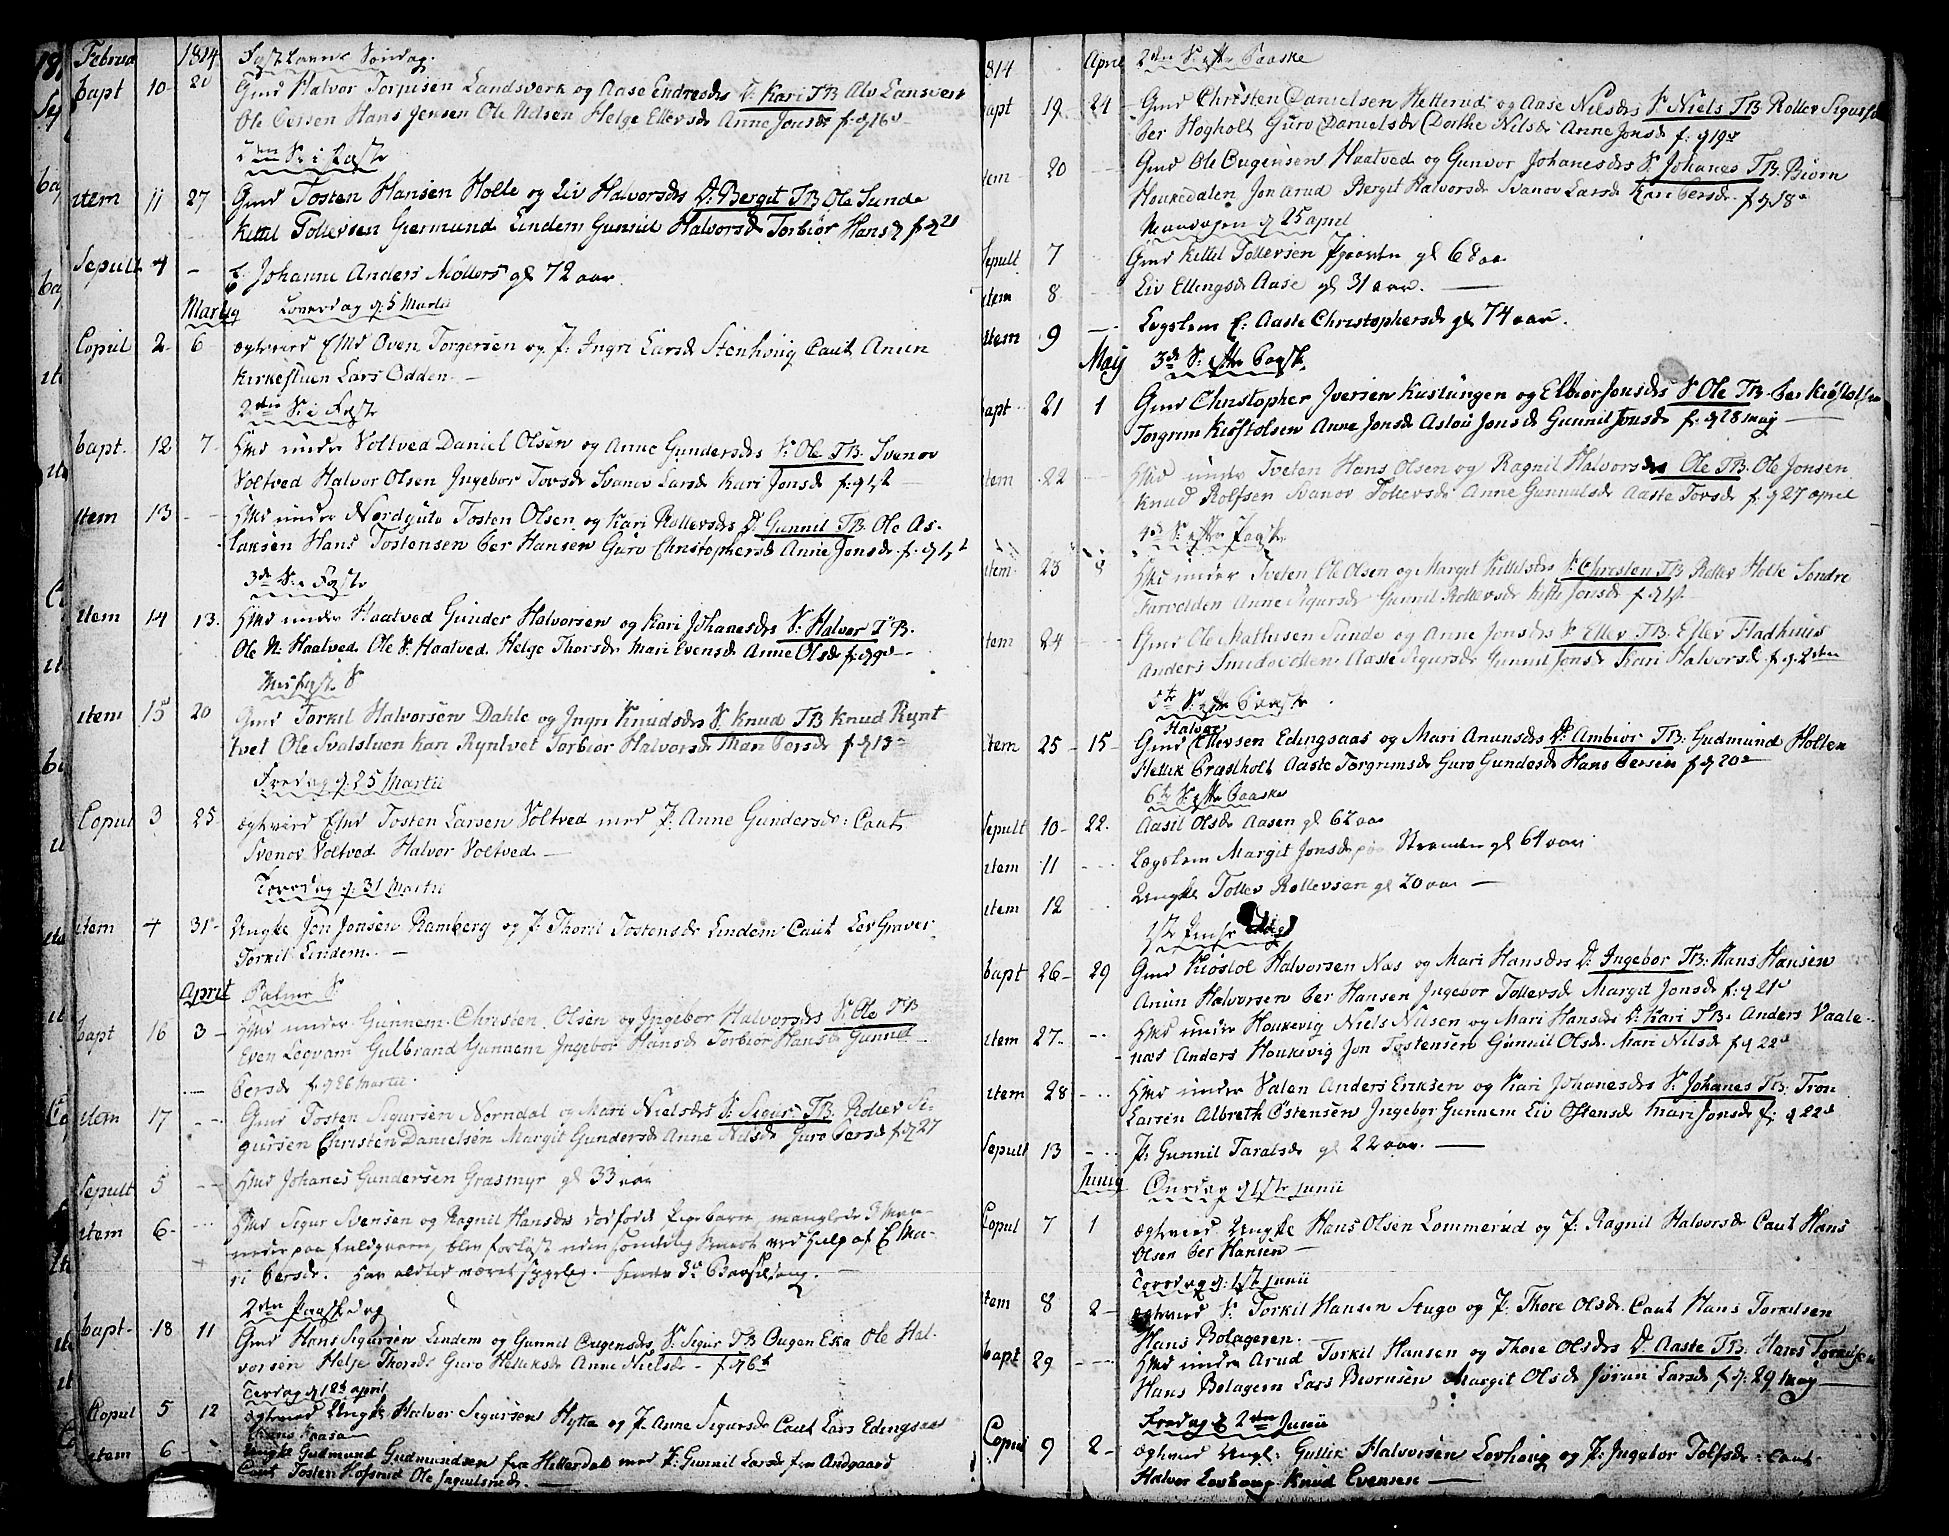 Februar 1814 Fastelavns Søndag.
bapt 10 20 Gmd Halvor Torgisen Landsverk og Aase Endresdr D. Kari TB. Alv Lansverk
Ole Persen Hans Jensen Ole Nilsen Helge Ellevsdr Anne Jonsdr f. d 16de
S. i Faste
item 11 27 Gmd Tosten Hansen Holte og Liv Halvorsdr D. Bergit TB. Ole Sunde
Kittil Tollevsen Giermund Lindem Gunnil Halvorsdr Torbiør Hansdr f. d 21
Sepult 4 - Johanne Anders Møllers gl 72 aar.
Martij Løverdag d. 5 Martii
Copul 2 6 ægtevied Emd Oven Torgersen og P. Ingri Larsdr Stenhvig Caut Anun
Kirkestuen Lars Odden.
2den S. i Faste
bapt. 12 7 Hmd under Voltved Daniel Olsen og Anne Gundersdr S. Ole TB. Svenov
Voltved Halvor Olsen Ingebor Torsdr Svanov Larsdr Kari Jonsdr f. d 1st
item 13 - Hmd under Nordgute Tosten Olsen og Kari Rollevsdr D. Gunnil TB. Ole As-
laksen Hans Tostensen Per Hansen Guro Christophersdr Anne Jonsdr f. d 1st
3de S. i Faste
item 14 13. Hmd under Haatved Gunder Halvorsen og Kari Johanesdr S. Halvor TB.
Ole N. Haatved Ole S. Haatved Helge Thorsdr Mari Evensdr Anne Olsdr f. d 9de
Midfaste S
item 15 20 Gmd Torkil Halvorsen Dahle og Ingri Knudsdr S. Knud TB Knud Rynt
tvet Ole Svalstuen Kari Ryntvet Torbiør Halvorsdr Mari Persdr f. d 13de
Fredag d. 25 Martii
Copul 3 25 ægteviid Emd Tosten Larsen Voltved med P. Anne Gundersdr: Caut
Svenov Voltved Halvor Voltved
Torsdag d. 31 Martii
item 4 31 Ungke Jon Jonsen Ramberg og P. Thoril Tostensdr Lindem Caut Lev Graver
Torkil Lindem.
April Palme S
bapt 16 3 Hmd under Gunnem Christen Olsen og Ingebor Halvorsdr S. Ole TB
Even Legvam Gulbrand Gunnem Ingebor Hansdr Torbiør Hansdr Gunnil
Persdr f. d 26 Martii.
item 17 Gmd Tosten Sigursen Norndal og Mari Nielsdr S. Sigur TB. Rollev Si-
gursen Christen Danielsen Margit Gundersdr Anne Nilsdr Guro Persdr f. d 27
Sepult 5 Hmd Johanes Gundersen Grasmyr gl 33 aar
item 6 Hmd Sigur Svensen og Ragnil Hansdr dødfødt Pigebarn, manglede 3 Maa-
neder paa fuldgaaen, blev forløst uden ved hielp af Ma-
ri Persdr. Har altid været
2den Paaskedag
bapt. 18 11 Gmd Hans Sigursen Lindem og Gunnil Ougensdr S. Sigur TB Ougan Eka Ole Hal-
vorsen Helje Thorsdr Guro Helliksdr Anne Nielsdr f. d 6te
Tirsdag d 12 april
Copul 5 12 ægteviid Ungke Halvor Sigursen Hytta og P. Anne Sigursdr Caut Lars Edingsaas
Hans Aasen
item 6 Ungke Gudmund Gudmundsen fra Hitterdal med P. Gunnil Larsdr fra Andgaard
Caut Tosten Hofsrud Ole Ingulsrud.
814 April 2den S. efter Paaske
bapt 19 24 Gmd Christen Danielsen Hetterud og Aase Nilsdr S. Niels TB. Rollev Sigursen
Per Hogholt Guro Danielsdr Dorthe Nilsdr Anne Jonsdr f. d 19de
item 20 Gmd Ole Ougensen Haatved og Gunvor Johanesdr S. Johanes TB. Biørn
Houkedalen Jon Arud Bergit Halvorsdr Svanov Larsdr Kari Persdr f. d 18de
Mandagen d 25 april
Sepult 7 Gmd Kittil Tollevsen gl 68 aar
item 8 Liv Ellingsdr Aase gl 31 aar.
item 9 Legslem E: Aaste Christophersdr gl 74 aar.
Maij 3de S. efter Paaske
bapt 21 1 Gmd Christopher Iversen Kaslungen og Elbior Jonsdr S. Ole TB. Per Kiøstolsen
Torgrim Kiøstolsen Anne Jonsdr Aslou Jonsdr Gunnil Jonsdr f. d 28 may
item 22 Hmd under Tveten Hans Olsen og Ragnil Halvorsdr Ole TB. Ole Jonsen
Knud Rolfsen Svanov Tollevsdr Anne Gunnulsdr Aaste Torsdr f. d 27 april
4de S. efter Paaske
item 23 8 Hmd under Tveten Ole Olsen og Margit Kittilsdr S. Christen TB Rollev Holte Sondre
Farvolden Anne Sigursdr Gunnil Rollevsdr Jonsdr f. d 1st
item 24 Gmd Ole Mathisen Sunde og Anne Jonsdr S. Ellev TB. Ellev Fladhuus
Anders Smedvolden Aaste Sigursdr Gunnil Jonsdr Kari Halvorsdr f. d. 2den
5te S. efter Paaske
Halvor
item 25 15 Gmd Ellevsen Edingsaas og Mari Anunsdr D. Ambior TB: Gudmund Holten
Hellik Præstholt Aaste Torgrimsdr Guro Gundesdr Hans Persen f. d 20de
6te S. efter Paaske
Sepult 10 22. Aasil Olsdr Aasen gl 62 aar
item 11 Legslem Margit Jonsdr paa Stranden gl 64 aar
item 12 Ungke Tollev Rollevsen gl 20 aar
1ste Pinse Dag
bapt 26 29 Gmd Kiøstol Halvorsen Næs og Mari Hansdr D. Ingebor TB: Hans Hansen
Anun Halvorsen Per Hansen Ingebor Tollevsdr Margit Jonsdr f. d 21de
item 27 Hmd under Houkevig Niels Nilsen og Mari Hansdr D. Kari TB. Anders Vaale-
næs Anders Houkevig Jon Tostensen Gunnil Olsdr. Mari Nilsdr f. d 22de
item 28 Hmd under Valen Anders Eriksen og Kari Johanesdr S. Johanes TB. Tron
Larsen Albreth Østensen Ingebor Gunnem Liv Ostensdr Mari Jonsdr f. d 22de
Sepult 13 P. Gunnil Taralsdr gl 22 aar.
Junij Onsdag d 1ste junii
Copul 7 1 ægteviid Ungke Hans Olsen Lommerud og P. Ragnil Halvorsdr Caut Hans
Olsen Per Hansen
Torsdag d. junii
item 8 2 ægteviid S. Torkil Hansen Stugo og P. Thore Olsdr. Caut Hans Torkilsen
Hans Bolageren.
bapt 29 Hmd under Arud Torkil Hansen og Thore Olsdr D. Aaste TB. Hans Torkilsen
Hans Bolagern Lars Biørnsen Margit Olsdr Jøran Larsdr f. d. 29 may
Fredag d 2den Junii
Copul 9 2 ægteviid Ungk. Gullik Halvorsen Lovhaug og P. Ingebor Tolfsdr: Caut
Halvor Lovhoug Knud Evensen